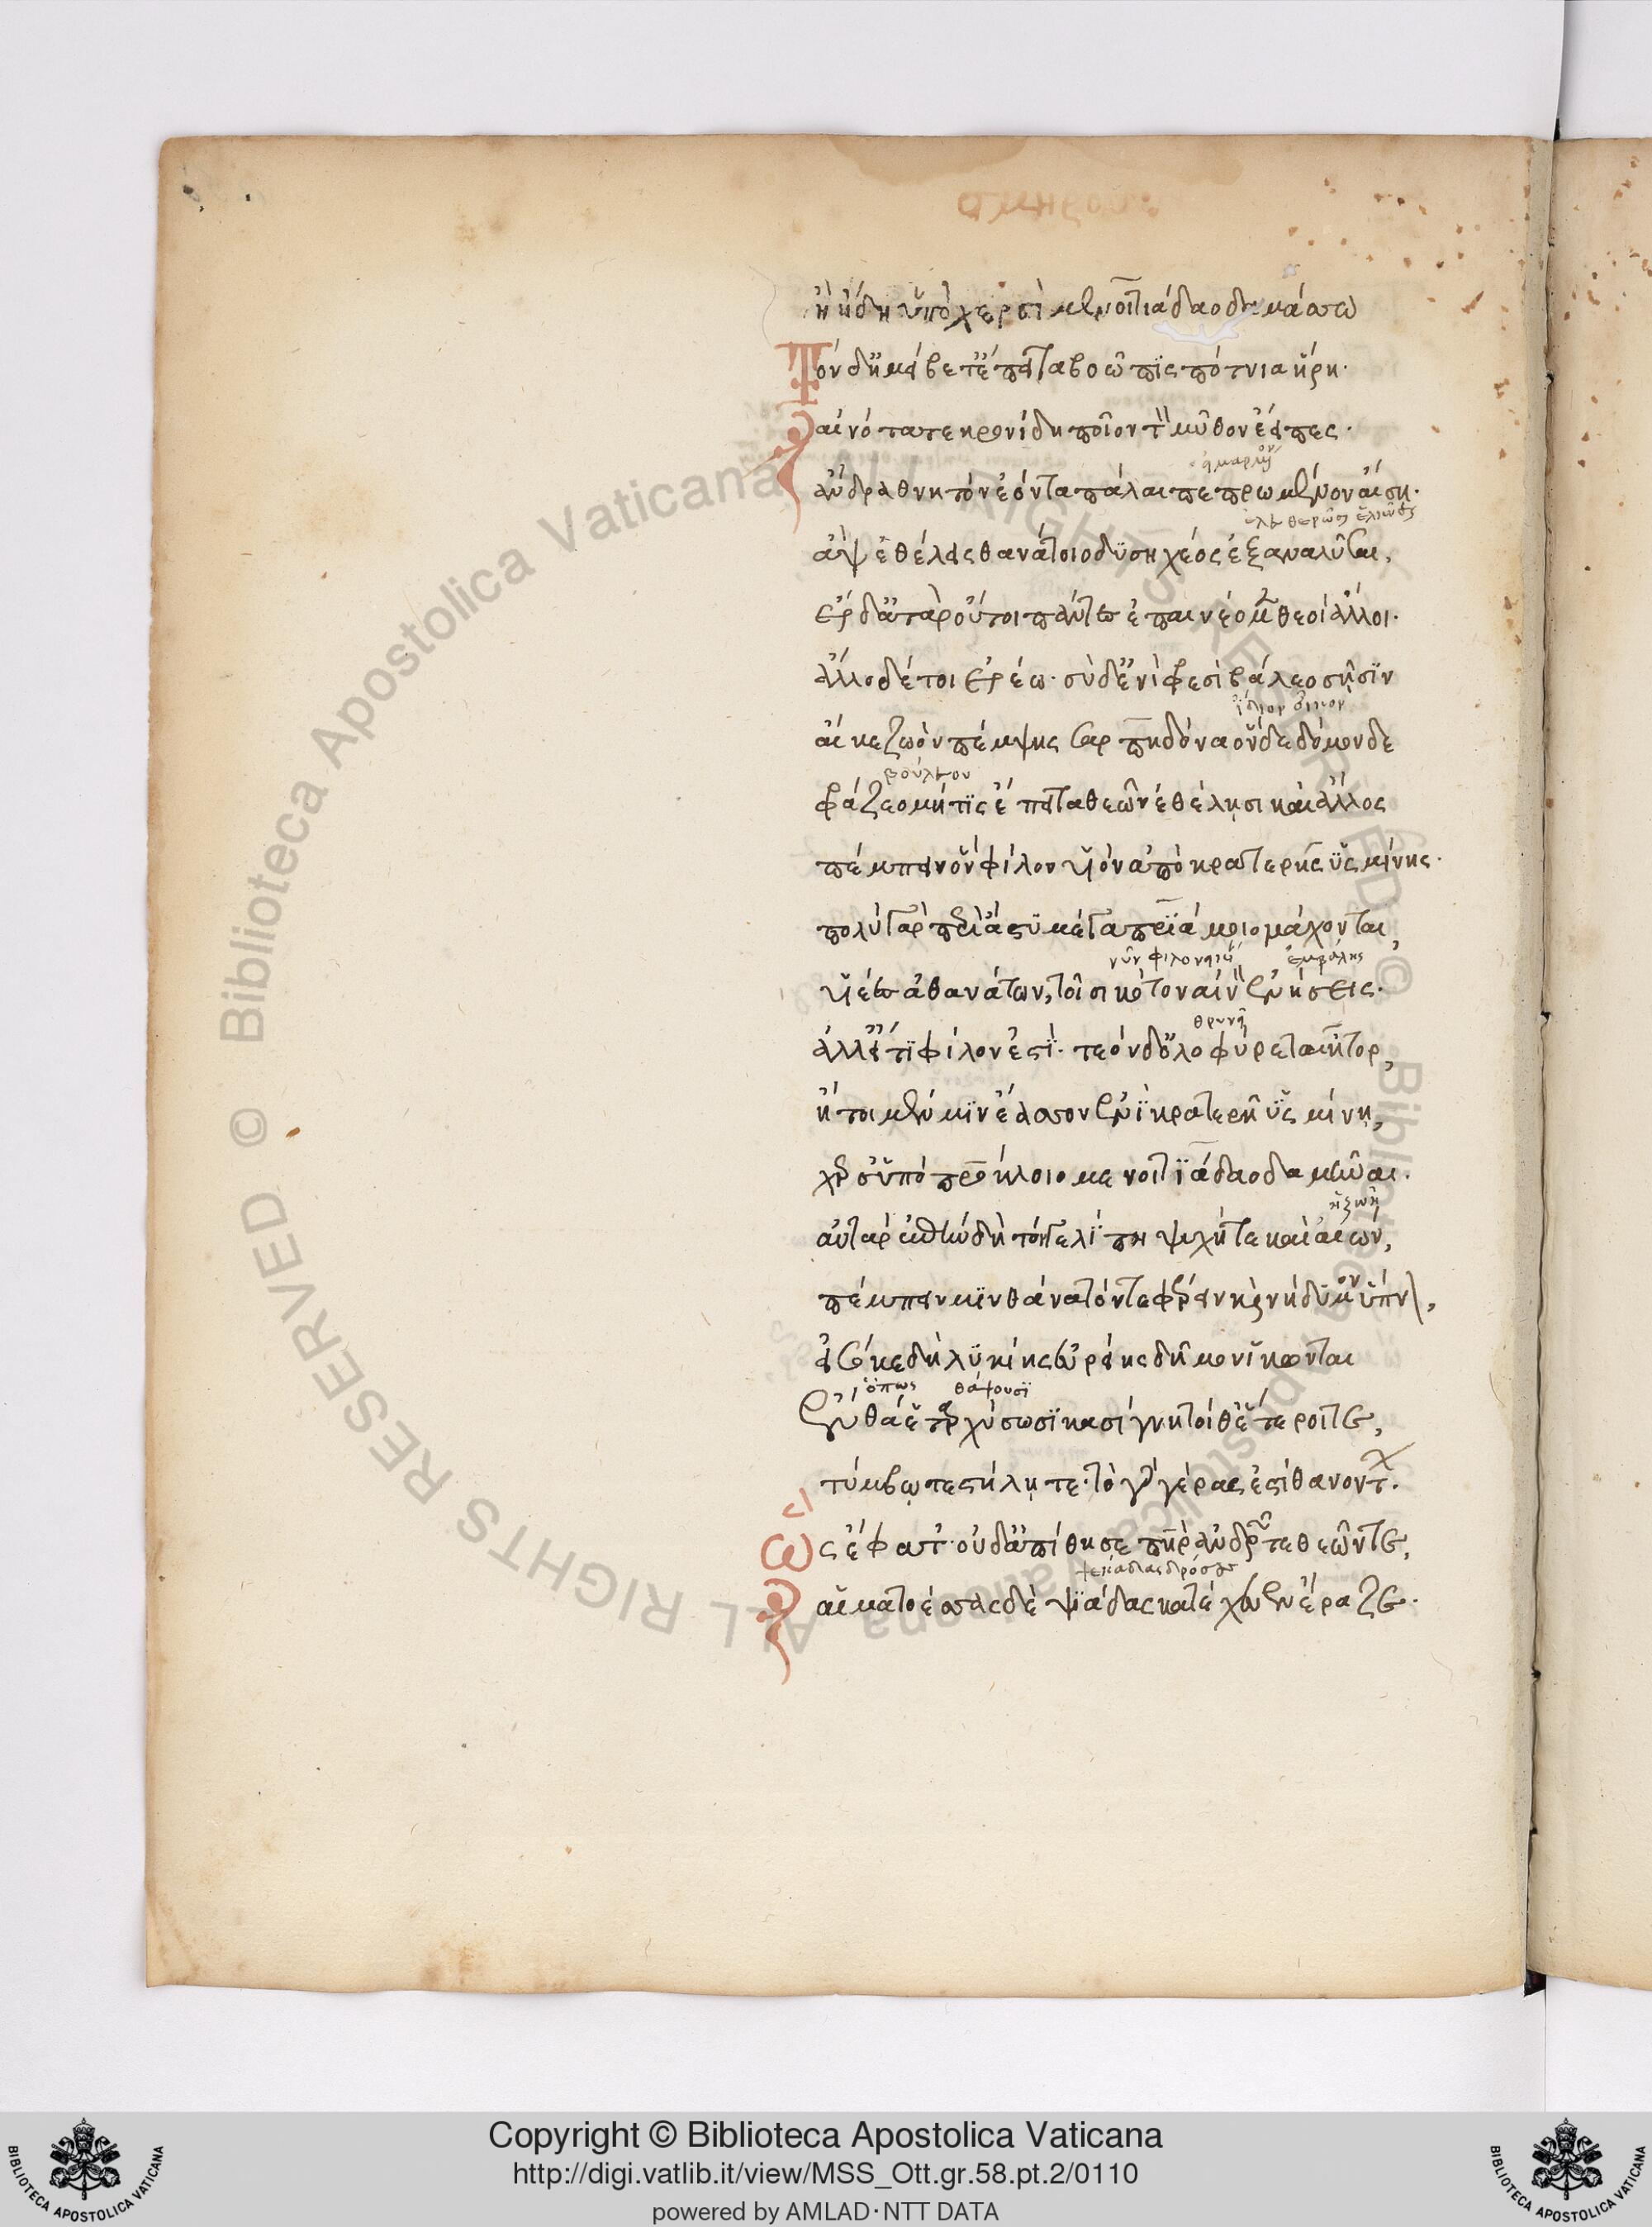 ἢ ἤδη ὑπὸ χερσὶ μενοιτιάδαο δαμάσσω
Τὸν δ' ἠμείβετ' ἔπειτα βοῶπις πότνια ἥρη·
αἰνότατε κρονίδη ποῖον τὸν μῦθον ἔειπες·
ἁμαρμένον
ἄνδρα θνητὸν ἐόντα πάλαι πεπρωμένον αἴση·
ἂψ ἐθέλεις θανάτοιο δυσηχέος ἐξαναλῦσαι,
ἔρδ' ἀτὰρ οὔτοι πάντες ἐπαινέομεν θεοὶ ἄλλοι·
ἄλλο δέ τοι ἐρέω· σὺ δ' ἐνὶ φρεσὶ βάλεο σῇσιν
ἴδιον οἶκον
αἴ κε ζωὸν πέμψῃς σαρπηδόνα ὅνδε δόμονδε
βουλεύου
φράζεο μήτις ἔπειτα θεῶν ἐθέλησι καὶ ἄλλος
πέμπειν ὃν φίλον υἱὸν ἀπὸ κρατερῆς ὑσμίνης·
πολλοὶ γὰρ περὶ ἄστυ μέγα πριάμοιο μάχονται,
ἐμβάλης
υἱέες ἀθανάτων, τοῖσι κότον αἰνὸν ἐνήσεις·
θρηνεῖ
ἀλλ' εἴ τι φίλον ἐστί· τεὸν δ' ὀλοφύρεται ἦτορ,
ἤτοι μέν μιν ἔασον ἐνὶ κρατερῇ ὑσμίνῃ,
χερσὶν ὑπὸ πατρόκλοιο μενοιτιάδαο δαμῆναι·
ἡ ζωὴ
αὐτὰρ ἐπὴν δὴ τόνγε λίπῃ ψυχή τε καὶ αἰών,
πέμπειν μιν θάνατόν τε φέρειν καὶ νήδυμον ὕπνον,
εἰσόκε δὴ λυκίης εὐρείης δῆμον ἵκωνται
ὅπως θάψουσι
ἔνθά ἑ ταρχύσωσι κασίγνητοί θ' ἕταροί τε,
τύμβῳ τε στήλῃ τε· τὸ γὰρ γέρας ἐστὶ θανόντων.
Ὣς ἔφατ'· οὐδ' ἀπίθησε πατὴρ ἀνδρῶν τε θεῶν τε,
ψεκάδας δρόσου
αἱματοέσσας δὲ ψιάδας κατέχευεν ἔραζε·
Copyright © Biblioteca Apostolica Vaticana
http://digi.vatlib.it/view/MSS_Ott.gr.58.pt.2/0110
powered by AMLAD·NTT DATA